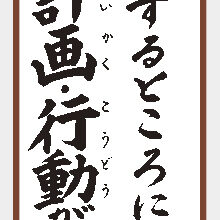 するところに
いかく こうどう
計画・行動が